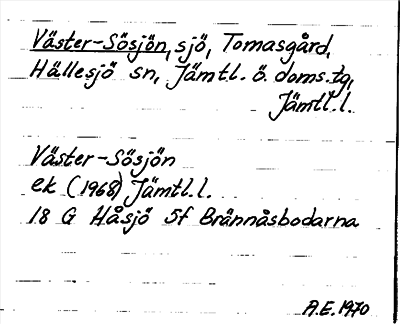 Väster-Sösjön, sjö, Tomasgård,
Hällesjö sn, Jämtl. ö. doms.tg,
Jämtl. l.
Väster-Sösjön
ek (1968) Jämtl. l.
18 G Håsjö 5f Brännåsbodarna
A.E. 1970